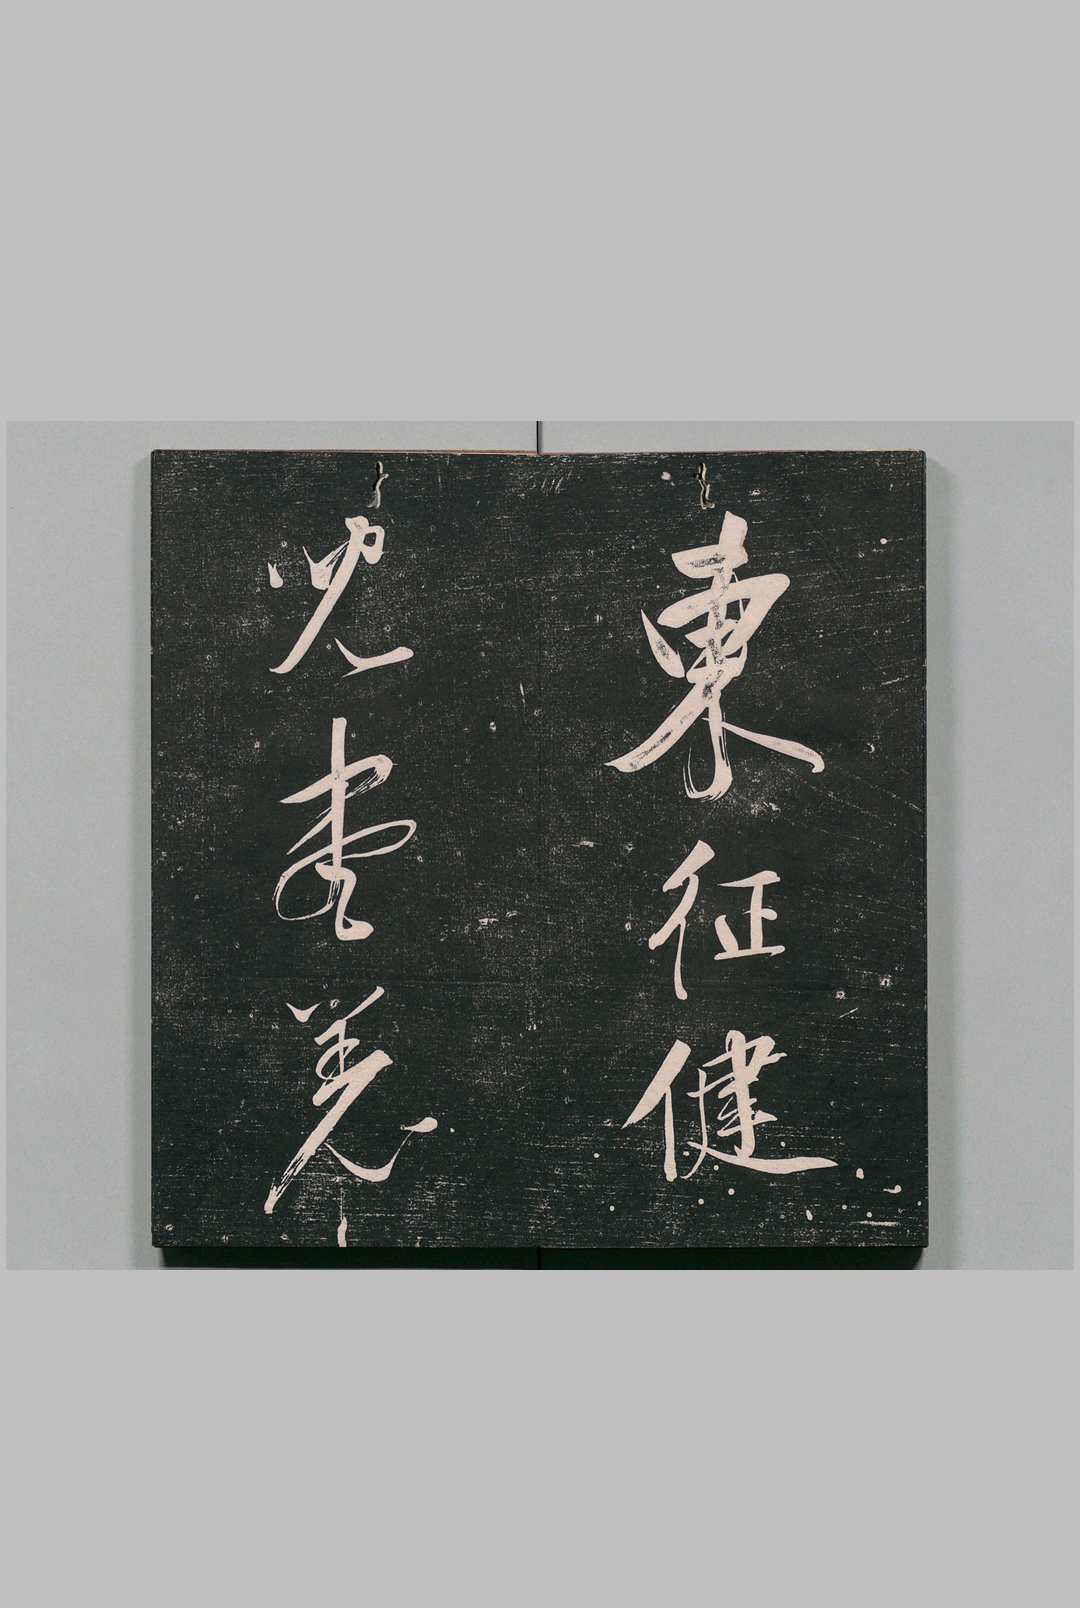 東征健
兒盡羌